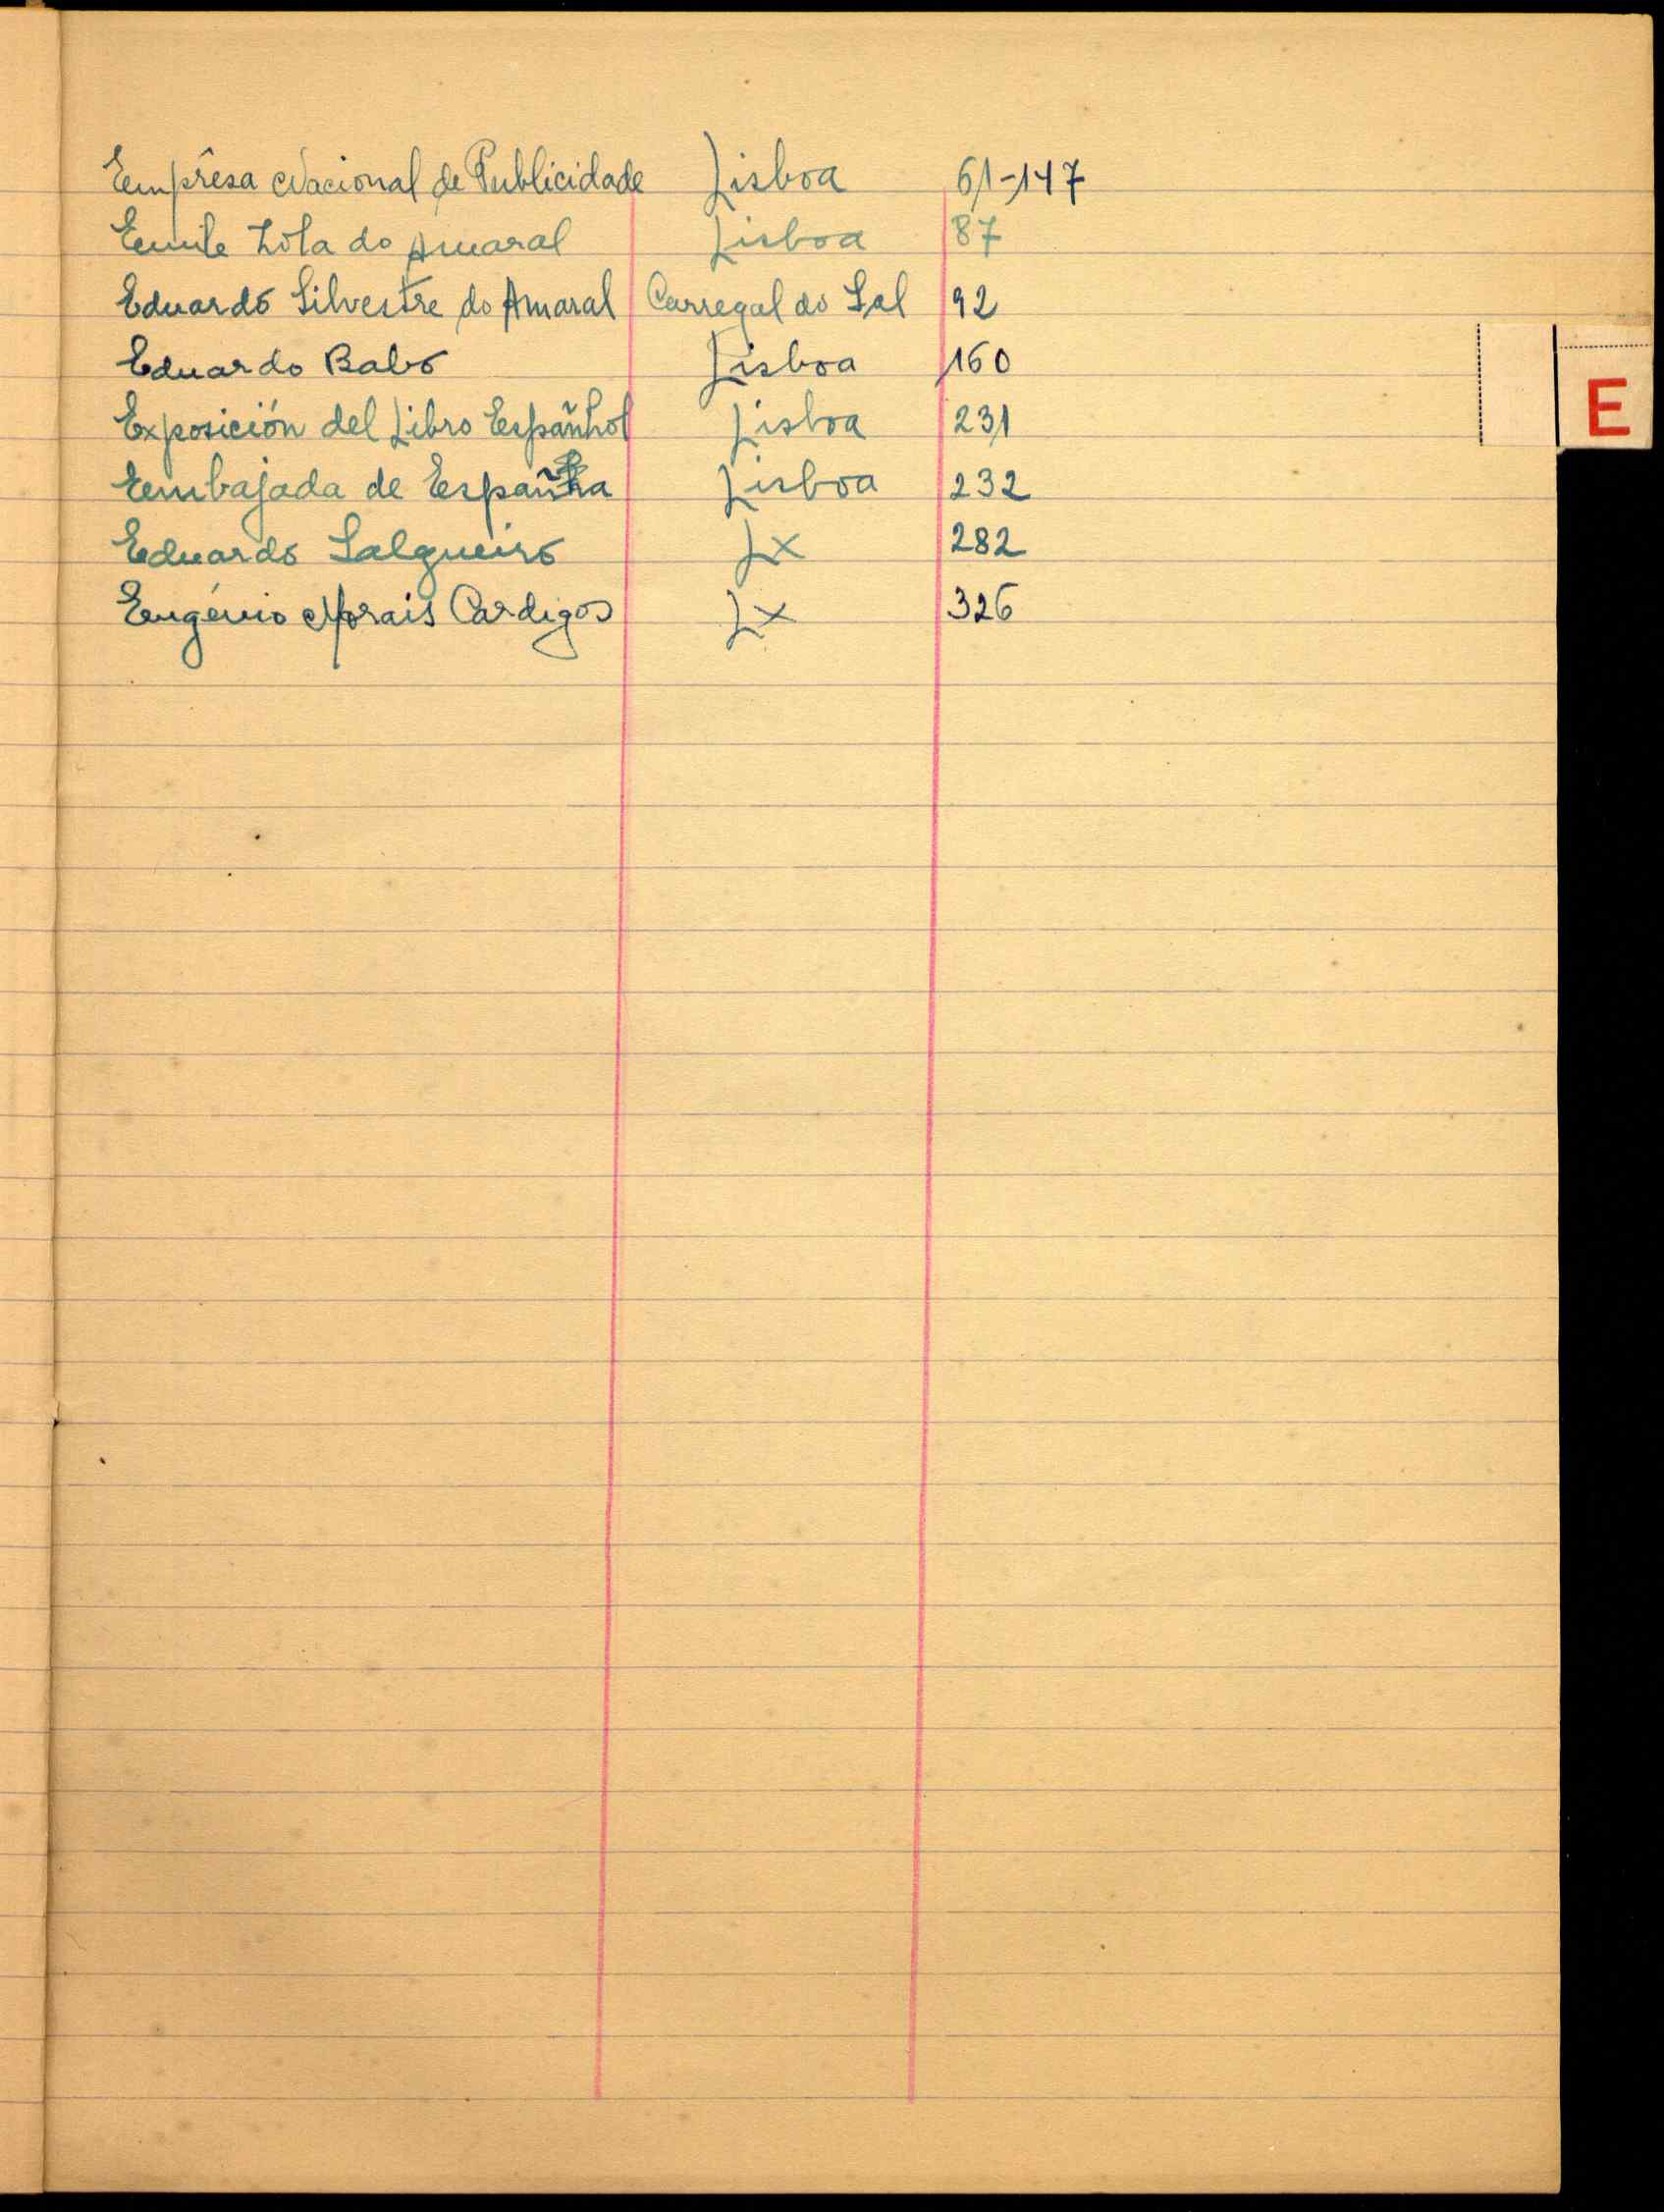 Emprêsa Nacional de Publicidade Lisboa 61-147
Emile Zola do Amaral Lisboa 87
Eduardo Silvestre do Amaral Carregal do Sal 92
Eduardo Babo Lisboa 160
Exposición del Libro Españhol Lisboa 231
E
Embajada de España Lisboa 232
Eduardo Salgueiro Lx 282
Eugénio Morais Cardigos Lx 326